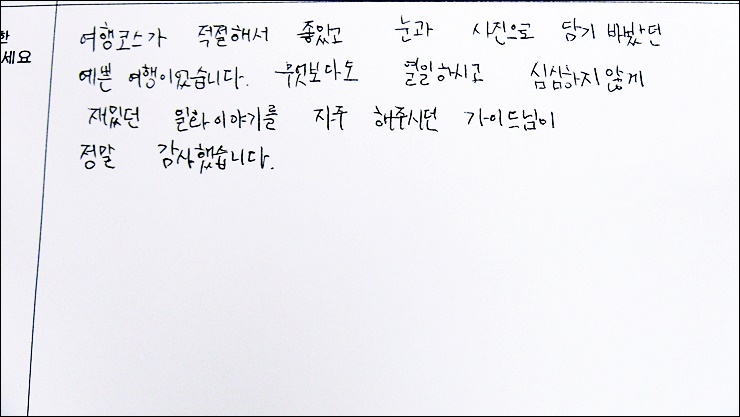 한
세요
여행코스가 적절해서 좋았고 눈과 사진으로 담기 바빴던
예쁜 여행이었습니다. 무엇보다도 열일하시고 심심하지 않게
재밌던 일화이야기를 자주 해주시던 가이드님이
정말 감사했습니다.